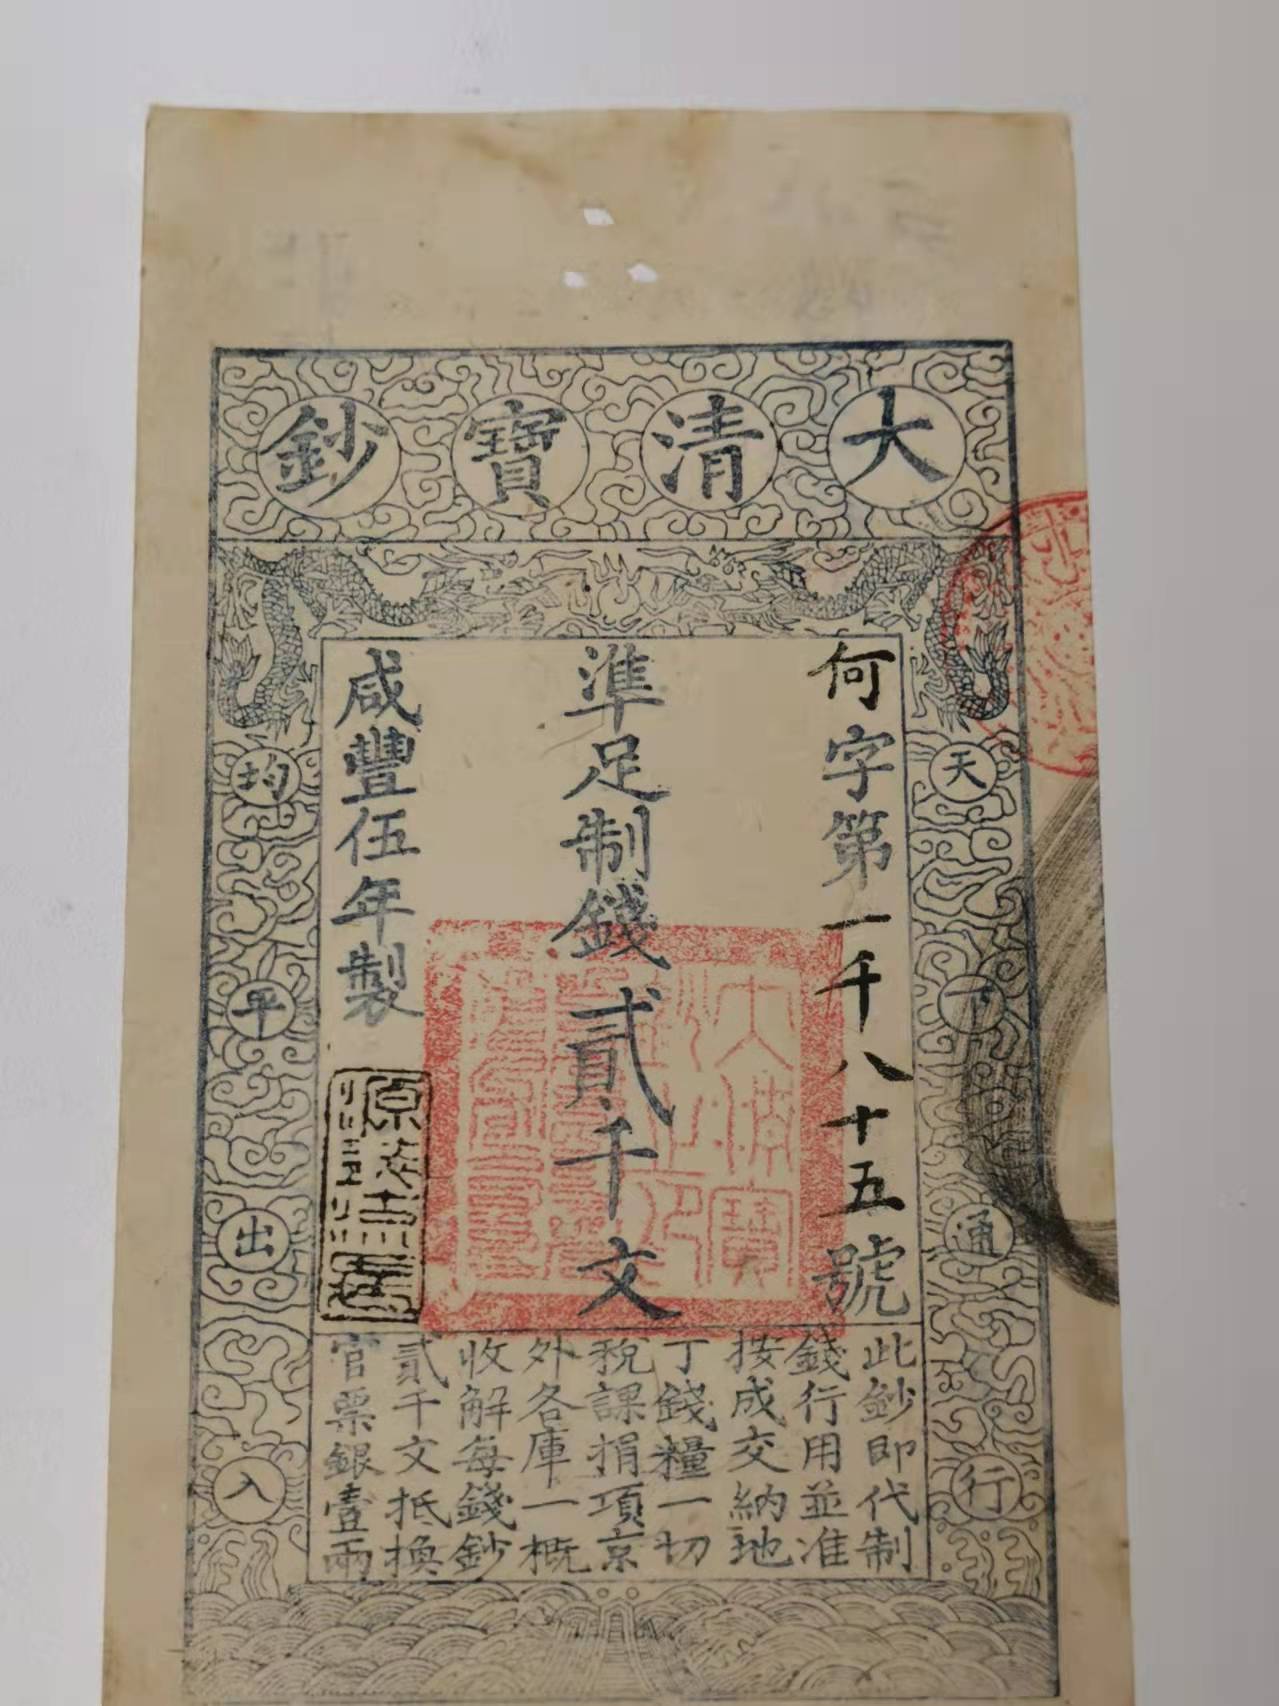 大清寶鈔
天下通行
何字第一千八十五號
準足制錢貳千文
咸豐伍年製
均平出入
此鈔即代制
錢行用並准
按成交納地
丁錢糧一切
稅課捐項京
外各庫一概
收解每錢鈔
貳千文抵換
官票銀壹兩